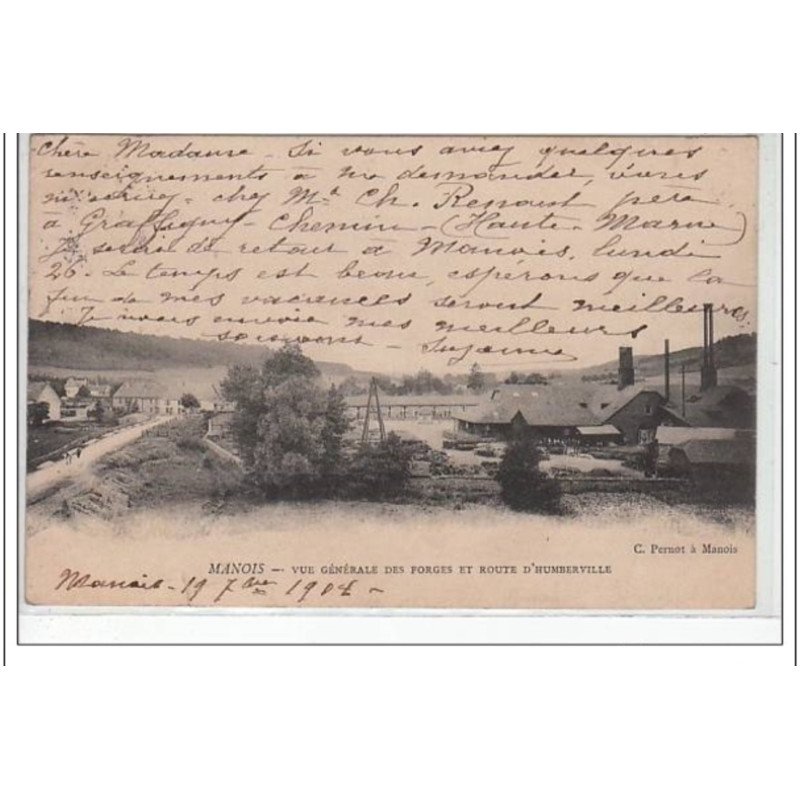 Chère Madame - Si vous aviez quelques
renseignements à me demander, veuez
m'écrire - chez Mr Ch. Renoust père
à Graffigny - Chemin - (Haute - Marne)
Je serai de retour à Manois, lundi
26. Le temps est beau, espérons que la
fin de mes vacances seront meilleures
Je vous envoie mes meilleurs
souvenirs - Suzanne
C. Pernot à Manois
MANOIS — VUE GÉNÉRALE DES FORGES ET ROUTE D'HUMBERVILLE
Manois - 19 7bre 1904 -